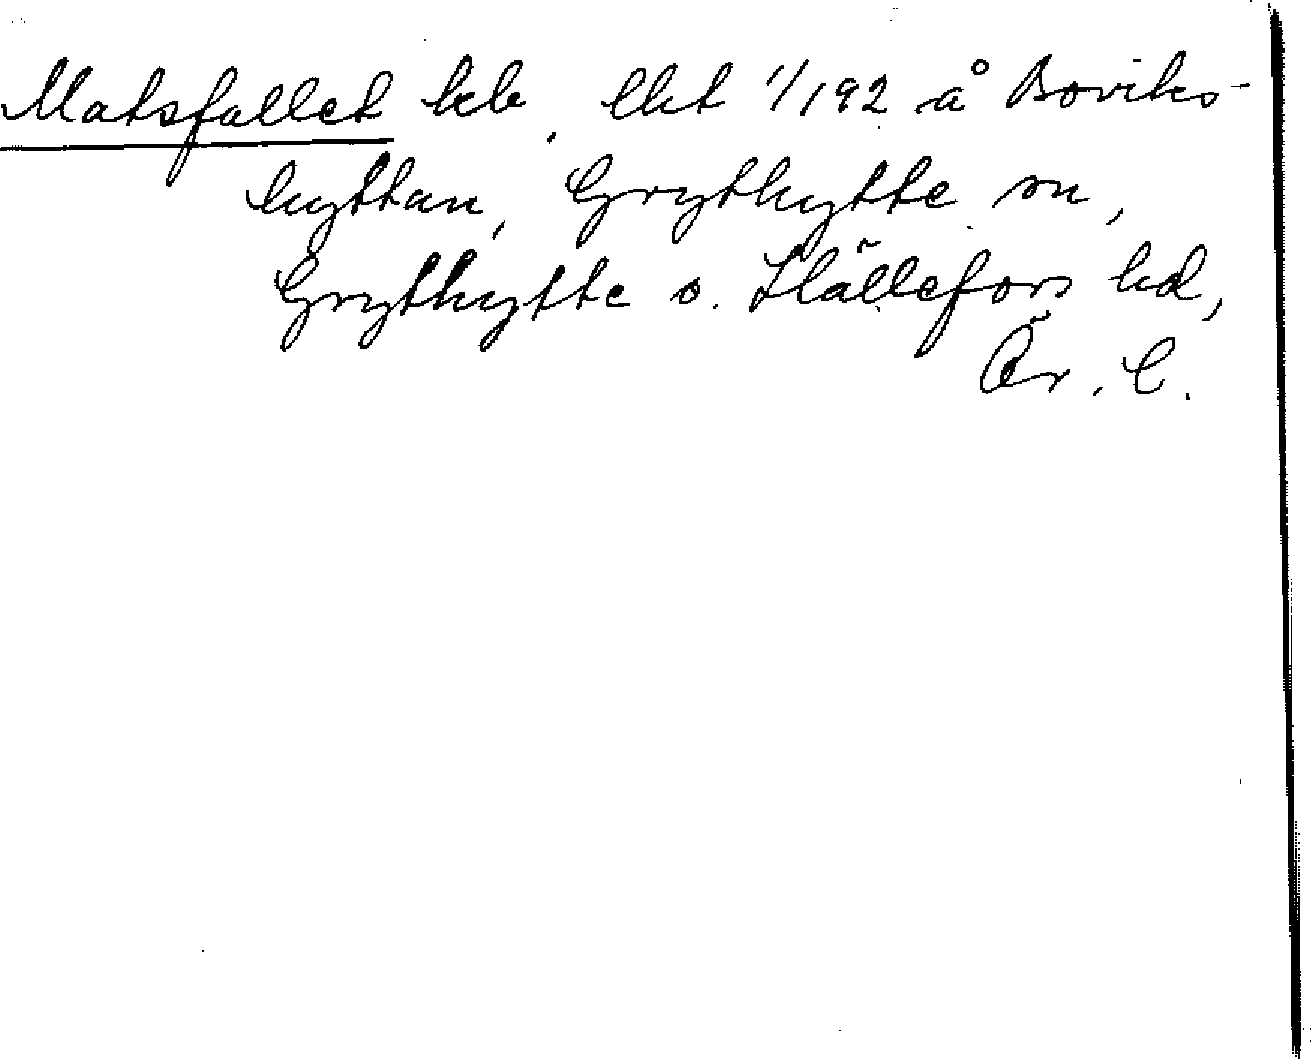 Matsfallet hel. lht 1/192 å Boviks-
hyttan, Grythytte sn,
Grythytte o. Hällefors hd,
Ör. l.